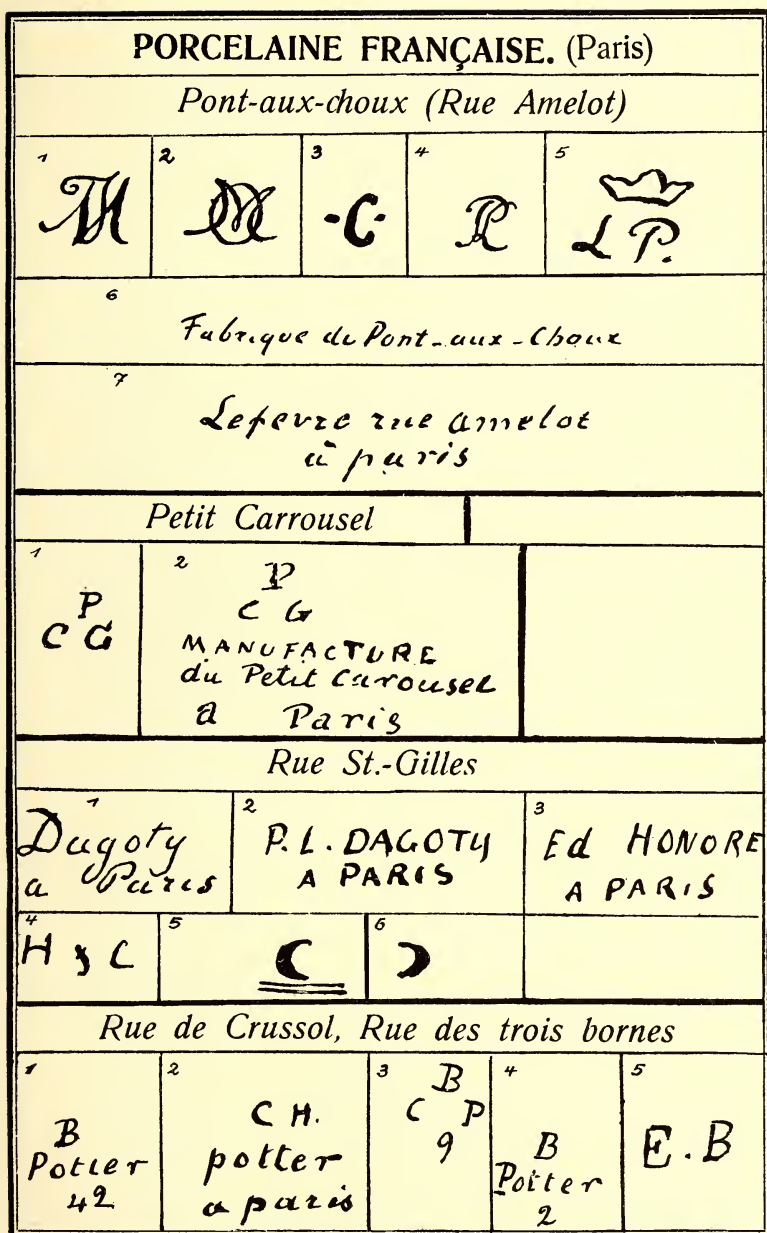 PORCELAINE FRANÇAISE. (Paris)
Pont-aux-choux (Rue Amelot)
1
2
3
-C-
4
5
L P.
6
Fabrique du Pont-aux-Choux
7
Lefevre rue amelot
à paris
Petit Carrousel
1
P
C G
2
P
C G
MANUFACTURE
du Petit Carousel
a Paris
Rue St.-Gilles
1
Dagoty
a Paris
2
P. L. DAGOTY
A PARIS
3
Ed HONORE
A PARIS
4
H & C
5
6
Rue de Crussol, Rue des trois bornes
1
B
Potter
42
2
C H.
potter
a paris
3
B
C P
9
4
B
Potter
2
5
E. B